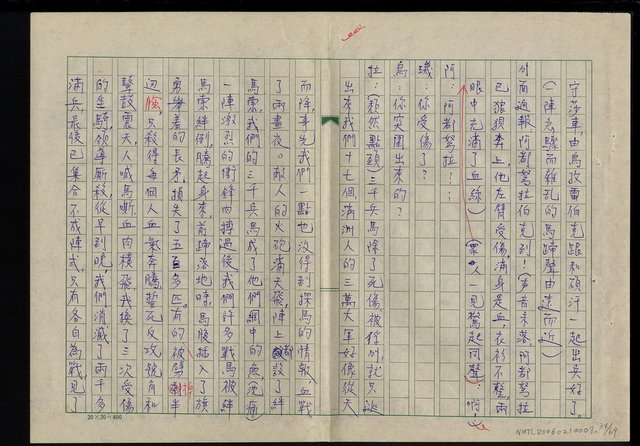 守蕩車,由烏孜雷伯克跟和碩汗一起出兵好了。
(一陣急驟而雜亂的馬蹄聲由遠而近)
外面迎報阿都努拉伯克到!(聲音未落阿都努拉
已狼狽奔上,他左臂受傷,滿身是血,衣衫不整,兩
眼中充滿了血絲)(眾人一見驚起同聲):啊!
阿:阿都努拉!⋯
璣:你受傷了?
烏:你突圍出來的?
拉:(頹然點頭)三千兵馬除了死傷被俘外就只逃
出來我們十七個,滿洲人的三萬大軍好像從天
而降,事先我們一點也沒得到探馬的情報,血戰
了兩晝夜。敵人的火砲滿天飛,陣上都設了絆
馬索,我們的三千兵馬成了他們網中的魚(沉痛)
一陣激烈的衝鋒肉搏過後我們許多戰馬被絆
馬索絆倒,騰起身來,前蹄落地時馬腹插入了旗
勇舉著的長矛,損失了五百多匹。有的被劈半
邊胸,只殺得每個人血氣奔騰誓死反攻,號角和
聲鼓震天,人喊馬嘶,血肉橫飛,我換了三次受傷
的生騎領導廝殺,從早到晚,我們消滅了兩千多
滿兵,最後已集合不成陣式,只有各自為戰,見了
20×20=400
NMTL20060210007
34/69